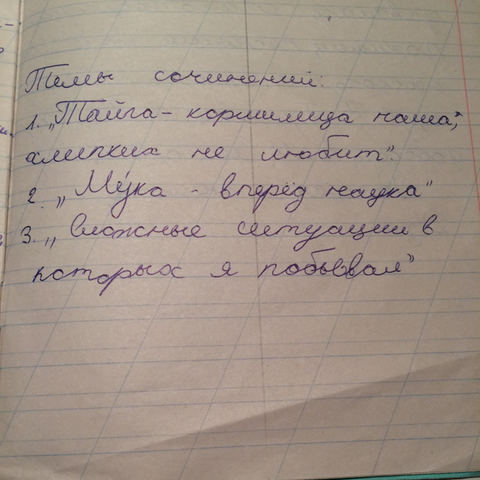 Темы сочинений:
1. „Тайга - кормилица наша,"
хлипких не любит".
2. „Му́ка - вперёд наука"
3. „Сложные ситуации в
которых я побывал"